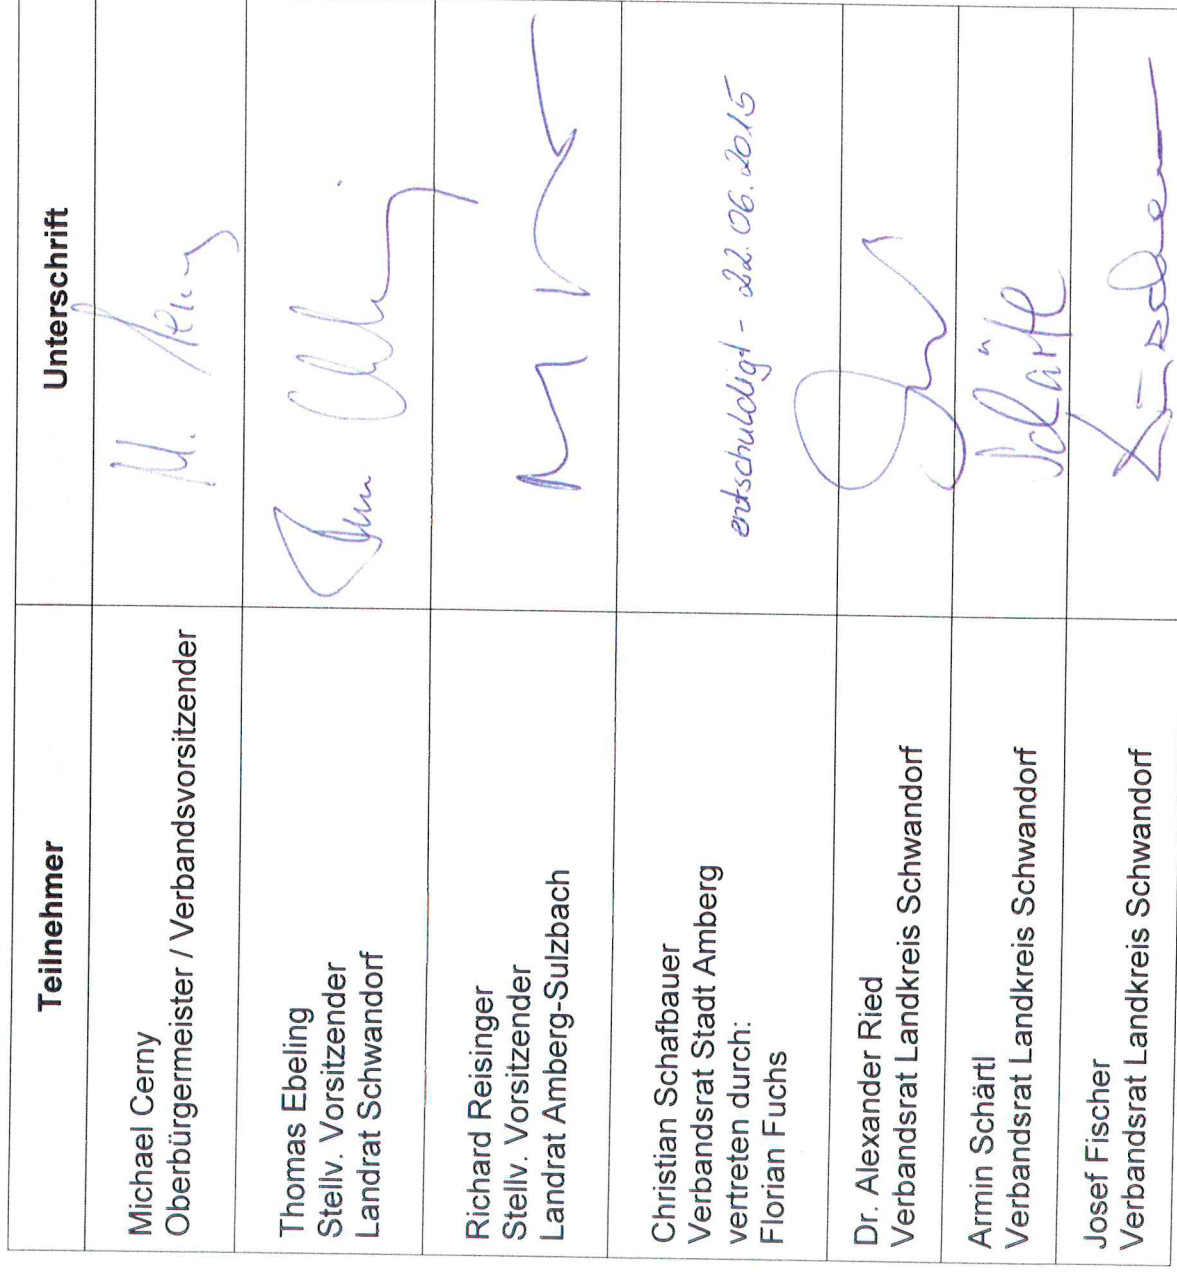 Teilnehmer
Unterschrift
Michael Cerny
Oberbürgermeister / Verbandsvorsitzender
M. Cerny
Thomas Ebeling
Stellv. Vorsitzender
Landrat Schwandorf
Richard Reisinger
Stellv. Vorsitzender
Landrat Amberg-Sulzbach
Christian Schafbauer
Verbandsrat Stadt Amberg
vertreten durch:
Florian Fuchs
entschuldigt - 22.06.2015
Dr. Alexander Ried
Verbandsrat Landkreis Schwandorf
Armin Schärtl
Verbandsrat Landkreis Schwandorf
Schärtl
Josef Fischer
Verbandsrat Landkreis Schwandorf